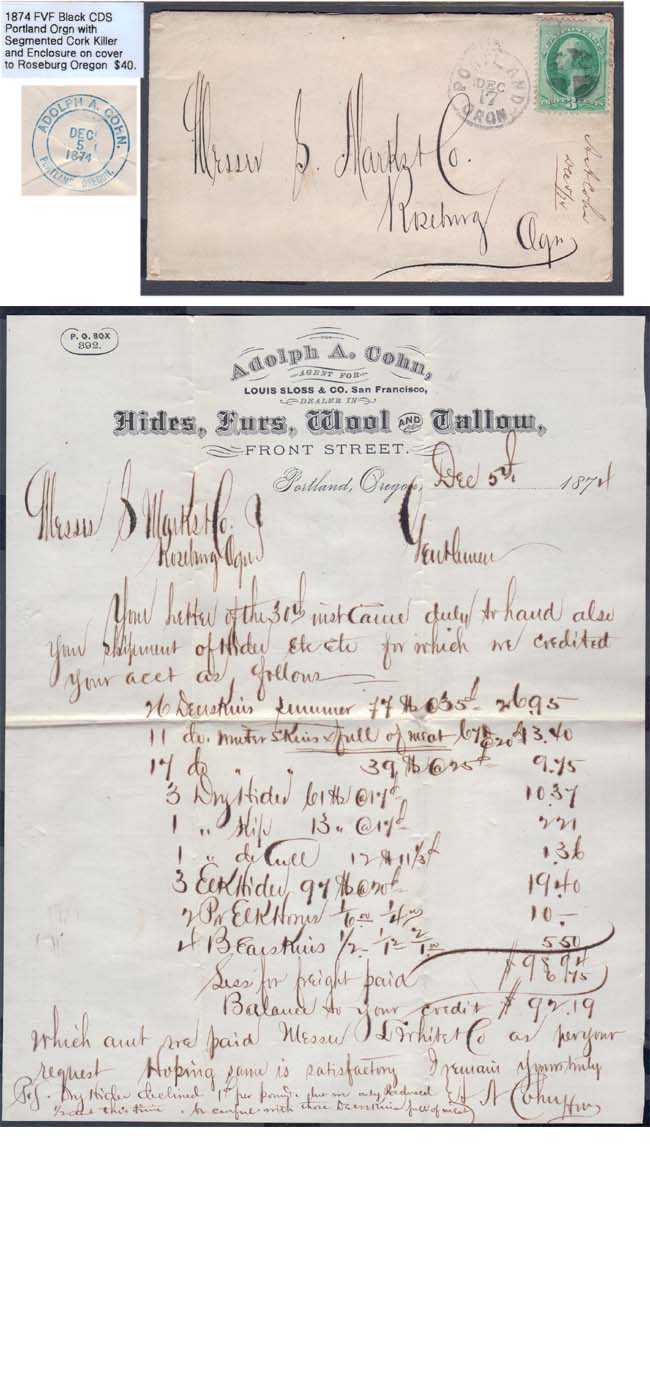 1874 FVF Black CDS
Portland Orgn with
Segmented Cork Killer
and Enclosure on cover
to Roseburg Oregon $40.
ADOLPH A. COHN.
DEC
5
1874
PORTLAND, OREGON.
PORTLAND
DEC
17
ORGN
3 CENTS
Messrs S. Marks & Co.
Roseburg
Ogn
A A Cohn
Dec 5/74
P. O. BOX
392.
Adolph A. Cohn,
AGENT FOR
LOUIS SLOSS & CO. San Francisco,
DEALER IN
Hides, Furs, Wool AND Tallow,
FRONT STREET.
Portland, Oregon, Dec 5th, 1874
Messrs S Marks & Co.
Roseburg Ogn
Gentlemen
Your Letter of the 30th inst came duly to hand also
your shipment of Hides etc etc for which we credited
your acct as follows
26 Deerskins summer 77 lb @35¢ 26.95
11 do. winter skins & full of meat 67 @20¢ 13.40
17 do " " 39 lb @25¢ 9.75
3 Dry Hides 61 lb @17¢ 10.37
1 " Kip 13 " @17¢ 2.21
1 " do Cull 12 lb 11⅓¢ 1.36
3 Elk Hides 97 lb @20¢ 19.40
2 Pr Elk Horns 1/6.00 1/4.00 10.-
4 Bearskins 1/2- 1/1.50 2/1.00 5.50
$98.94
Less for freight paid 6.75
Balance to your credit $92.19
which amt we paid Messrs White & Co as per your
request Hoping same is satisfactory I remain yours truly
A A Cohn
P.S. Dry Hides declined 1¢ per pound we only Reduced
this time. be careful with those Deerskins full of meat